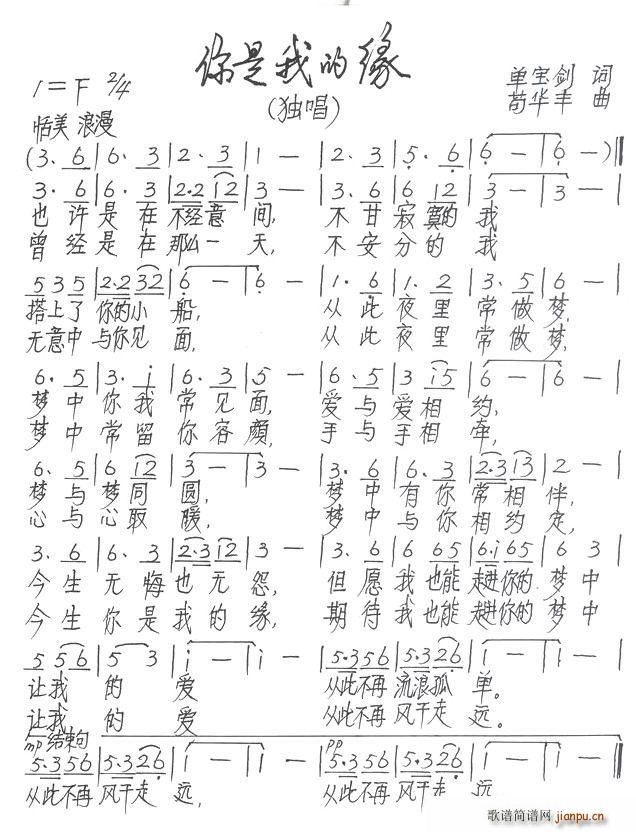 你是我的缘
(独唱)
1=F 2/4
单宝剑 词
苟华丰 曲
恬美 浪漫
(3. 6|6. 3|2. 3|1 —|2. 3|5. 6|6 —|6. —)‖
3. 6|6. 3|2·2 12|3 —|3. 6|6 12|3 —|3 —|
也许是在不经意间, 不甘寂寞的我
曾经是在那么一天, 不安分的我
5 3 5|2·2 32|6 —|6 —|1. 6|1. 2|3. 5|6 —|
搭上了你的小船, 从此夜里常做梦,
无意中与你见面, 从此夜里常做梦,
6. 5|3. i|6. 3|5 —|6. 5|3 i5|6 —|6 —|
梦中你我常见面, 爱与爱相约,
梦中常留你容颜, 手与手相牵,
6. 5|6 i2|3 —|3 —|3. 6|6. 3|2·3 13|2 —|
梦与梦同圆, 梦中有你常相伴,
心与心取暖, 梦中与你相约定,
3. 6|6. 3|2·3 12|3 —|3. 6|6 65|6·i 65|6 3|
今生无悔也无怨, 但愿我也能走进你的梦中
今生你是我的缘, 期待我也能走进你的梦中
5 56|5 3|i —|i —|5·3 56|5·3 26|1 —|1 —|
让我的爱 从此不再流浪孤单。
让我的爱 从此不再风干走远。
mp 结束句 pp
5·3 56|5·3 26|1 —|1 —|5·3 56|5·3 26|1 —|1 —‖
从此不再风干走远, 从此不再风干走远
歌谱简谱网
jianpu.cn